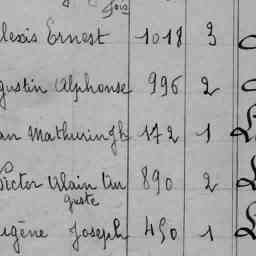 fois
lexis Ernest 1018 3
gustin Alphonse 996 2
an Mathurin Jh 172 1
Victor Alain Au 890 2
guste
ugène Joseph 450 1